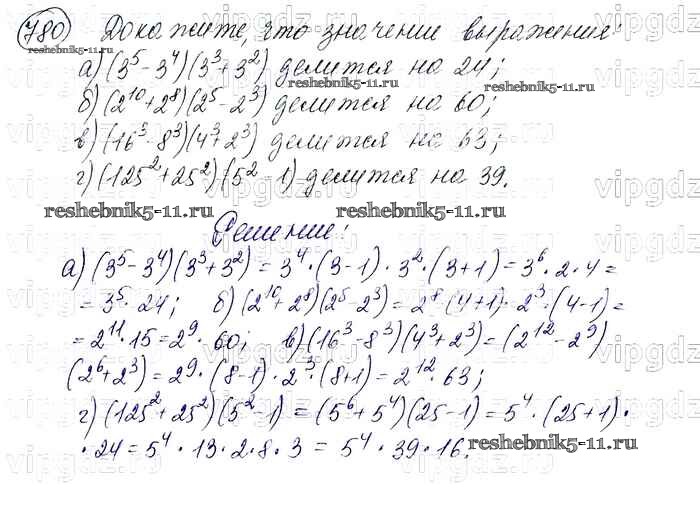 780) Докажите, что значение выражения:
reshebnik5-11.ru
а) (3⁵-3⁴)(3³+3²) делится на 24;
б) (2¹⁰+2⁸)(2⁵-2³) делится на 60;
в) (16³-8³)(4³+2³) делится на 63;
г) (125²+25²)(5²-1) делится на 39.
reshebnik5-11.ru reshebnik5-11.ru
Решение:
а) (3⁵-3⁴)(3³+3²) = 3⁴·(3-1)·3²·(3+1) = 3⁶·2·4 =
= 3⁵·24; б) (2¹⁰+2⁸)(2⁵-2³) = 2⁸·(4+1)·2³·(4-1) =
= 2¹¹·15 = 2⁹·60; в) (16³-8³)(4³+2³) = (2¹²-2⁹)
(2⁶+2³) = 2⁹·(8-1)·2³·(8+1) = 2¹²·63;
г) (125²+25²)(5²-1) = (5⁶+5⁴)(25-1) = 5⁴·(25+1)·
·24 = 5⁴·13·2·8·3 = 5⁴·39·16.
reshebnik5-11.ru